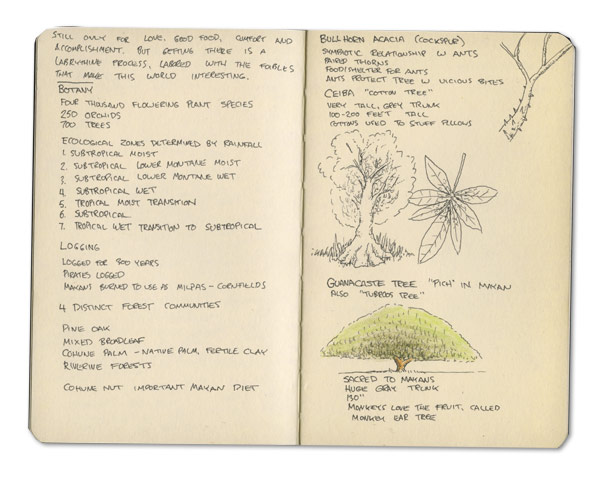 STILL ONLY FOR LOVE, GOOD FOOD, COMFORT AND
ACCOMPLISHMENT. BUT GETTING THERE IS A
LABRYTHINE PROCESS, LABORED WITH THE FOIBLES
THAT MAKE THIS WORLD INTERESTING.
BOTANY
FOUR THOUSAND FLOWERING PLANT SPECIES
250 ORCHIDS
700 TREES
ECOLOGICAL ZONES DETERMINED BY RAINFALL
1. SUBTROPICAL MOIST
2. SUBTROPICAL LOWER MONTANE MOIST
3. SUBTROPICAL LOWER MONTANE WET
4. SUBTROPICAL WET
5. TROPICAL MOIST TRANSITION
6. SUBTROPICAL
7. TROPICAL WET TRANSITION TO SUBTROPICAL
LOGGING
LOGGED FOR 300 YEARS
PIRATES LOGGED
MAYANS BURNED TO USE AS MILPAS - CORNFIELDS
4 DISTINCT FOREST COMMUNITIES
PINE OAK
MIXED BROADLEAF
COHUNE PALM - NATIVE PALM, FERTILE CLAY
RIVERINE FORESTS
COHUNE NUT IMPORTANT MAYAN DIET
BULLHORN ACACIA (COCKSPUR)
SYMBIOTIC RELATIONSHIP W ANTS
PAIRED THORNS
FOOD/SHELTER FOR ANTS
ANTS PROTECT TREE W VICIOUS BITES
CEIBA "COTTON TREE"
VERY TALL, GREY TRUNK
100-200 FEET TALL
COTTONS USED TO STUFF PILLOWS
GUANACASTE TREE "PICH" IN MAYAN
ALSO "TUBROOS TREE"
SACRED TO MAYANS
HUGE GRAY TRUNK
130"
MONKEYS LOVE THE FRUIT, CALLED
MONKEY EAR TREE